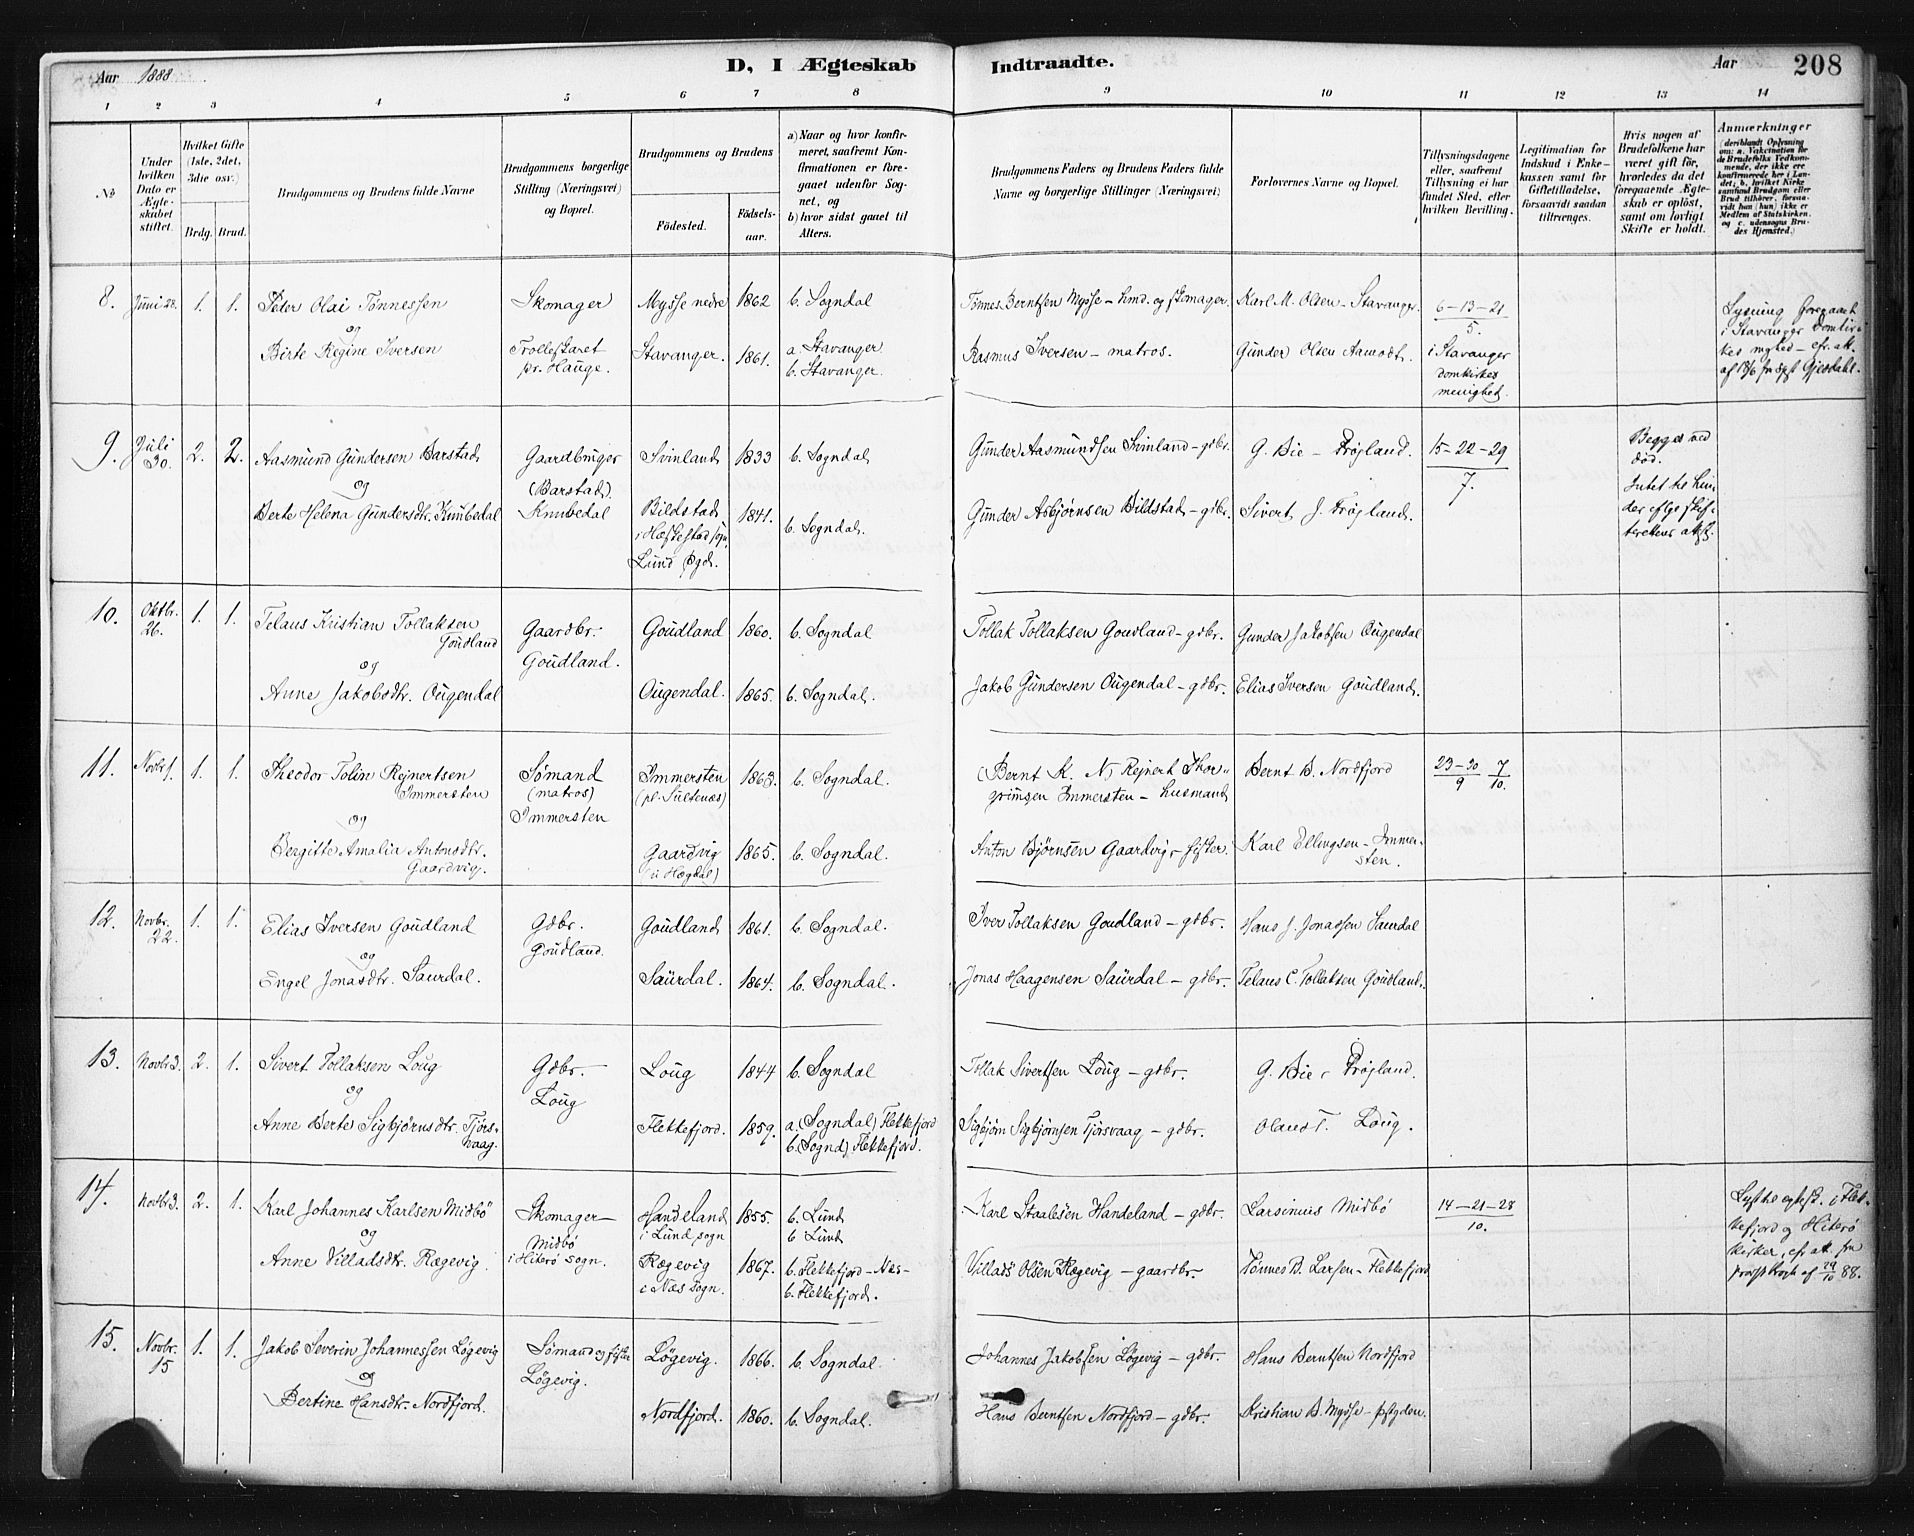 Aar 1888
D, I Ægteskab Indtraadte.
Aar 208
1 2 3 4 5 6 7 8 9 10 11 12 13 14
№
Under hvilken Dato er Ægteskabet stiftet.
Hvilket Gifte (1ste, 2det, 3die osv.)
Brdg. Brud.
Brudgommens og Brudens fulde Navne
Brudgommens borgerlige Stilling (Næringsvei) og Bopæl.
Brudgommens og Brudens
Fødested.
Fødselsaar.
a) Naar og hvor konfirmeret, saafremt Konfirmationen er foregaaet udenfor Sognet, og
b) hvor sidst gaaet til Alters.
Brudgommens Faders og Brudens Faders fulde Navne og borgerlige Stillinger (Næringsvei)
Forlovernes Navne og Bopæl.
Tillysningsdagene eller, saafremt Tillysning ei har fundet Sted, efter hvilken Bevilling.
Legitimation for Indskud i Enkekassen samt for Giftetilladelse, forsaavidt saadan tiltrænges.
Hvis nogen af Brudefolkene har været gift før, hvorledes da det foregaaende Ægteskab er opløst, samt om lovligt Skifte er holdt.
Anmærkninger (deriblandt Oplysning om: a. Vakcination for de Brudefolks Vedkommende, der ikke ere konfirmerede her i Landet; b. hvilket Kirkesamfund Brudgom eller Brud tilhører, forsaavidt han (hun) ikke er Medlem af Statskirken, og c. udensogns Brudes Hjemsted.)
8. Juni 28. 1. 1. Peder Olai Tønnessen
og
Birte Regine Iversen
Skomager
Trolleskaret
pr. Hauge.
Mysse nedre 1862 b. Sogndal
Stavanger. 1861. a. Stavanger
b. Stavanger.
Tønnes Berntsen Mysse – hmd. og skomager.
Rasmus Iversen – matros.
Karl M. Olsen – Stavanger.
Gunder Olsen Aamodt.
6–13–21
5.
i Stavanger
domkirkes
menighet.
Lysning foregaaet
i Stavanger Domkirkes
mghed – cfr. att.
9. Juli 30. 2. 2. Aasmund Gundersen Barstad
og
Berte Helena Gundersdtr. Knubedal
Gaardbruger
(Barstad).
Knubedal
Svinland 1833 b. Sogndal
Bildstad
i Hæskestad sogn,
Lund pgd. 1841. b. Sogndal.
Gunder Aasmundsen Svinland – gdbr.
Gunder Asbjørnsen Bildstad – gdbr.
G. Bie – Frøjland.
Sivert J. Frøjland.
15–22–29
7.
Begges ved
død.
Intet til hinder
eftge skifterettens
attst.
10. Oktbr. 26. 1. 1. Telaus Kristian Tollaksen
Goudland
og
Anne Jakobsdtr. Ougendal
Gaardbr.
Goudland.
Goudland 1860. b. Sogndal
Ougendal. 1865. b. Sogndal.
Tollak Tollaksen Goudland – gdbr.
Jakob Gundersen Ougendal – gdbr.
Gunder Jakobsen Ougendal
Elias Iversen Goudland.
11. Novbr 1. 1. 1. Theodor Tolin Rejnertsen
Immersten
og
Bergitte Amalia Antonsdtr.
Gaardvig.
Sømand
(matros)
Immersten
Immersten 1863. b. Sogndal.
(pl. Sultenæs)
Gaardvig 1865. b. Sogndal.
(u Hægdal)
(Bernt K. N) Rejnert Thorgrimsen
Immersten – husmand
Anton Bjørnsen Gaardvig – fisker.
Bernt B. Nordfjord
Karl Ellingsen – Immersten.
23–30 7
9 10.
12. Novbr. 22. 1. 1. Elias Iversen Goudland
og
Engel Jonasdtr. Saurdal.
Gdbr.
Goudland.
Goudland 1861. b. Sogndal.
Saurdal. 1864. b. Sogndal.
Iver Tollaksen Goudland – gdbr.
Jonas Haagensen Saurdal – gdbr.
Hans J. Jonassen Saurdal
Telaus C. Tollaksen Goudland.
13. Novbr 3. 2. 1. Sivert Tollaksen Loug
og
Anne Berte Sigbjørnsdtr. Tjørsvaag.
Gdbr.
Loug
Loug 1844 b. Sogndal
Flekkefjord. 1859. a. (Sogndal) Flekkefjord
b. (Sognd) Flekkefjord.
Tollak Sivertsen Loug – gdbr.
Sigbjørn Sigbjørnsen Tjørsvaag – gdbr.
G. Bie – Frøjland.
Olaus T. Loug.
14. Novbr 3. 2. 1. Karl Johannes Karlsen Midbø
og
Anne Villadsdtr. Rægevig.
Skomager
Midbø
i Hiterø sogn.
Handeland 1855. b. Lund
i Lund sogn b Lund
Rægevig 1867. b. Flekkefjord – Næs –
i Næs sogn. b. Flekkefjord.
Karl Staalesen Handeland – gdbr.
Villads Olsen Rægevig – gaardbr.
Larsinius Midbø
Tønnes B. Larsen – Flekkefjord
14–21–28
10.
Lyst til egtesk. i Flekkefjord
og Hiterø
kirker, cfr. att. fra
af 29/10 88.
15. Novbr. 15 1. 1. Jakob Severin Johannessen Løgevig
og
Bertine Hansdtr. Nordfjord.
Sømand og fisker
Løgevig.
Løgevig. 1866. b. Sogndal.
Nordfjord. 1860. b. Sogndal.
Johannes Jakobsen Løgevig – gdbr.
Hans Berntsen Nordfjord – gdbr.
Hans Berntsen Nordfjord
Kristian B. Mysse – pstgden.